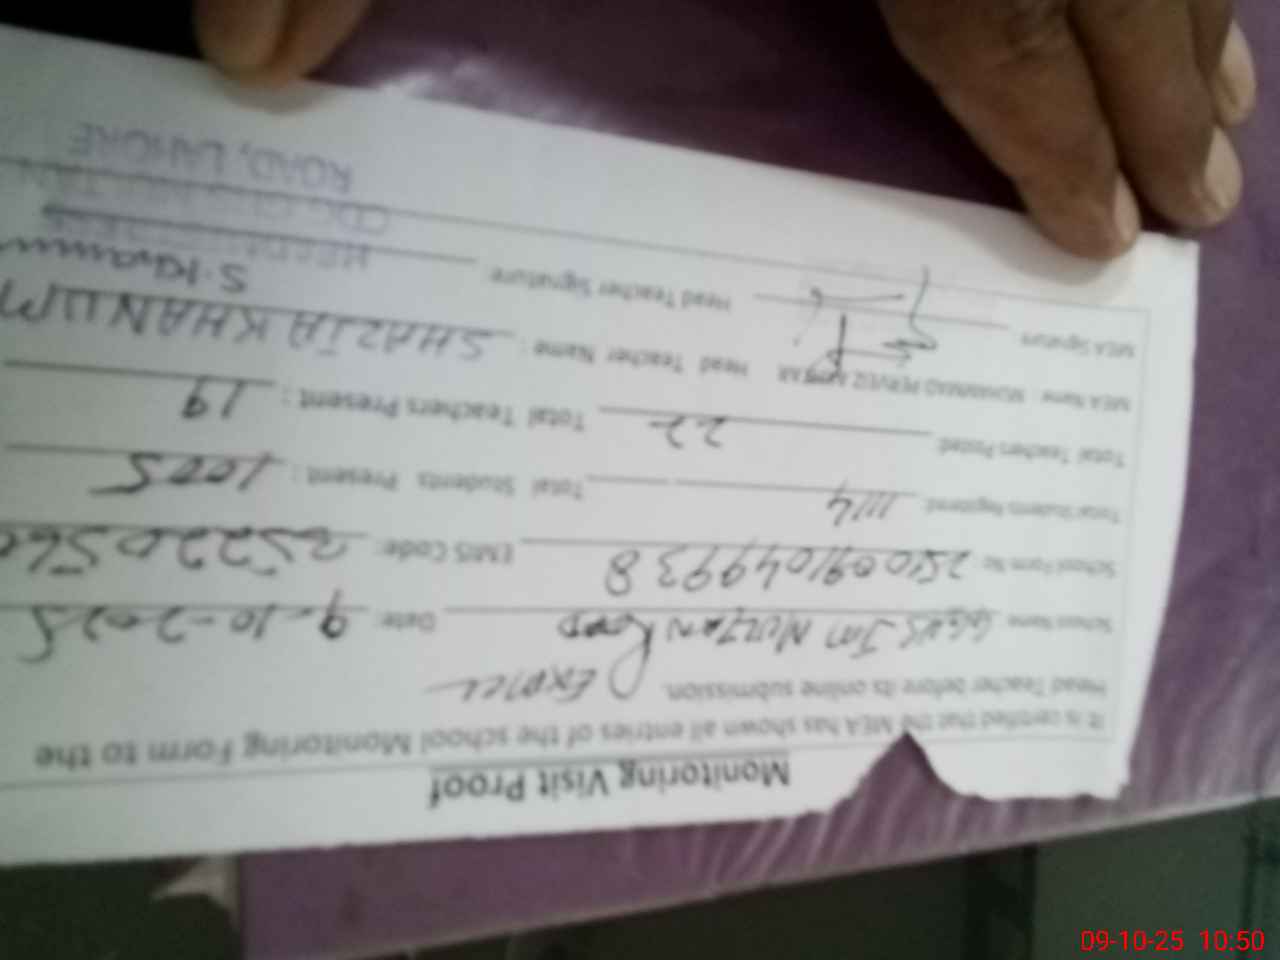 Monitoring Visit Proof
It is certified that the MEA has shown all entries of the school Monitoring Form to the
Head Teacher before its online submission.
School Name MULTAN ROAD Date: 9-10-2025
School Form No: 2510091049938 EMIS Code: 3522056
Total Students Registered: 1114 Total Students Present: 1005
Total Teachers Posted: 22 Total Teachers Present: 19
MEA Name: MUHAMMAD PERVEZ Head Teacher Name: SHAZIA KHANUM
MEA Signature Head Teacher Signature: S. Khanum
ROAD, LAHORE
09-10-25 10:50